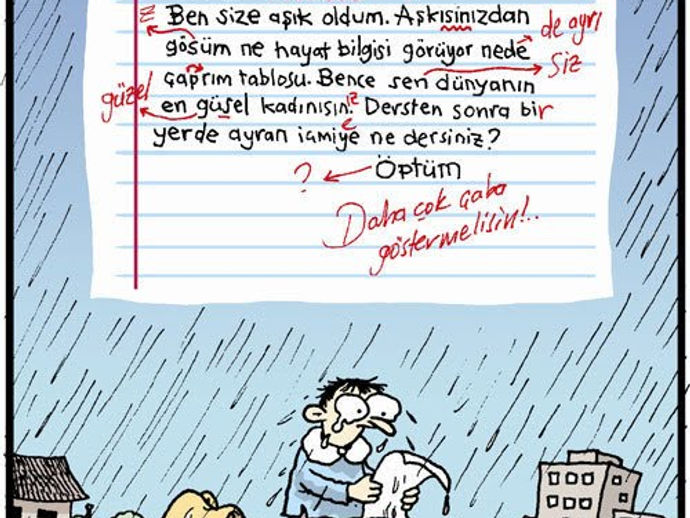 z Ben size aşık oldum. Aşkısinizdan de ayrı
gösüm ne hayat bilgisi görüyor nede
çaprım tablosu. Bence sen dünyanın siz
güzel en güsel kadınısın. iz Dersten sonra bir
yerde ayran içmiye e ne dersiniz?
? Öptüm
Daha çok çaba
göstermelisin!..